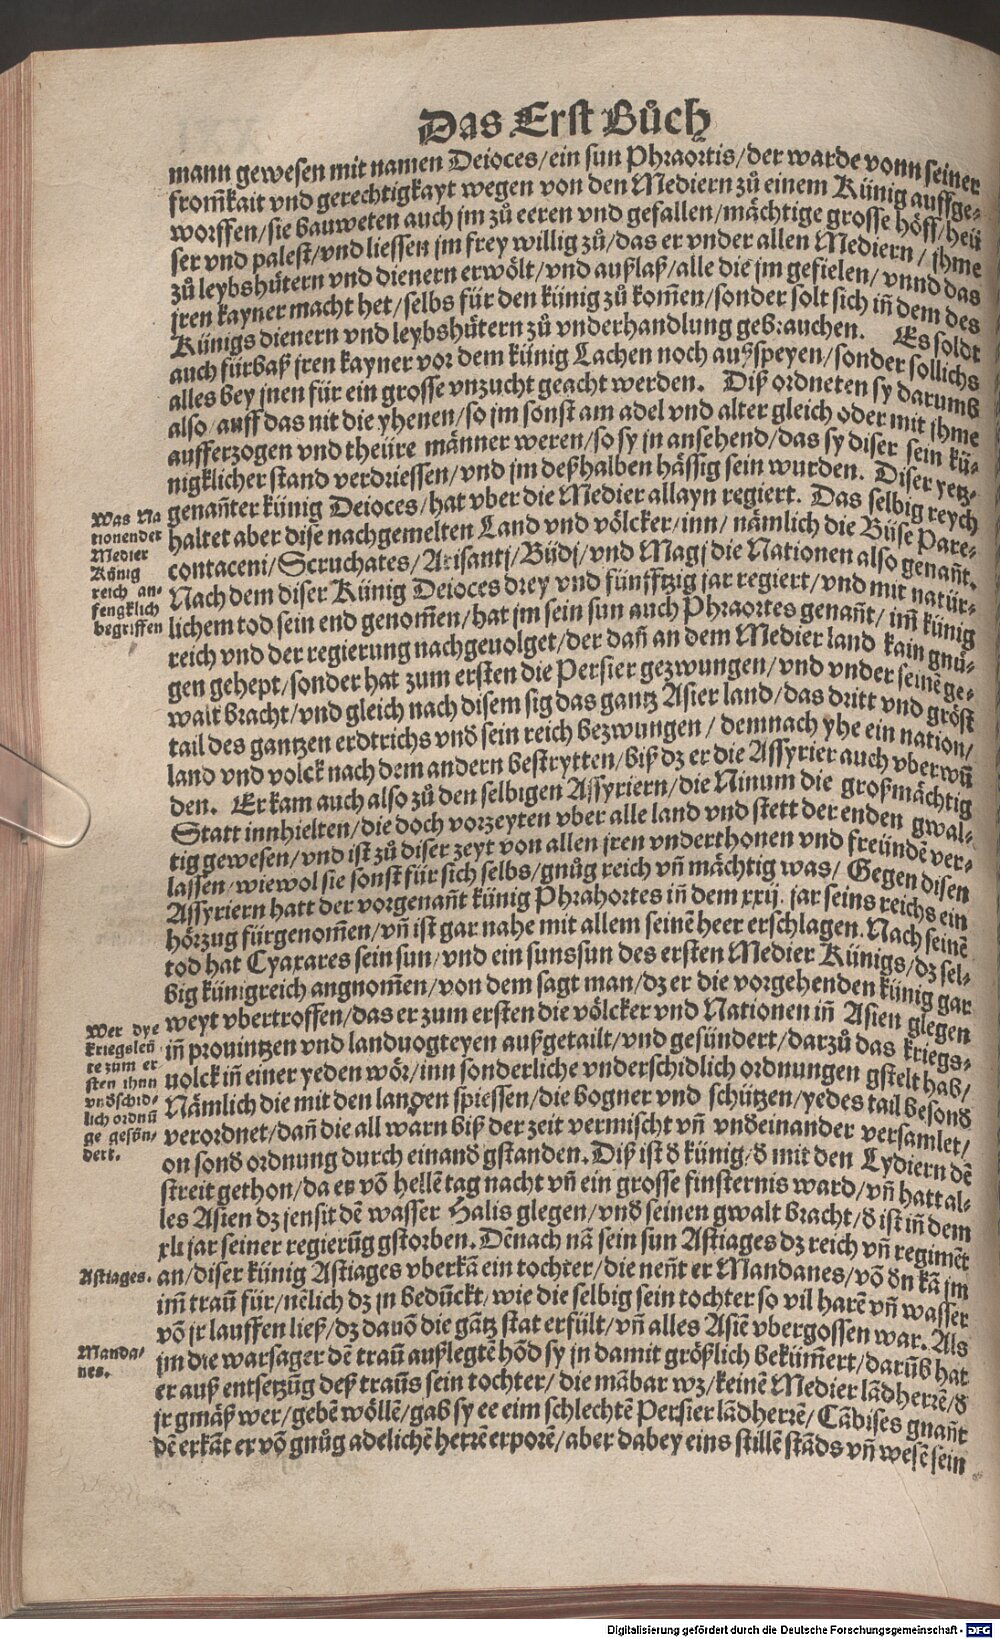 Das Erst Bůch
mann gewesen mit namen Deioces/ein sun Phraortis/der warde vonn seiner
from̃kait vnd gerechtigkayt wegen von den Mediern zů einem Künig auffge-
worffen/sie bauweten auch jm zů eeren vnd gefallen/mächtige grosse höff/heü
ser vnd palest/vnd liessen jm frey willig zů/das er vnder allen Mediern/jhme
zů leybshütern vnd dienern erwölt/vnd außlaß/alle die jm gefielen/vnnd das
jren kayner macht het/selbs für den künig zů kom̃en/sonder solt sich in̄ dem des
Künigs dienern vnd leybshütern zů vnderhandlung gebrauchen. Es soldt
auch fürbaß jren kayner vor dem künig Lachen noch außspeyen/sonder sollichs
alles bey jnen für ein grosse vnzucht geacht werden. Diß ordneten sy darumb
also/auff das nit die yhenen/so jm sonst am adel vnd alter gleich oder mit jhme
aufferzogen vnd theüre männer weren/so sy jn ansehend/das sy diser sein kü-
nigklicher stand verdriessen/vnd jm deßhalben hässig sein wurden. Diser yetz-
genan̄ter künig Deioces/hat vber die Medier allayn regiert. Das selbig reych
haltet aber dise nachgemelten Land vnd völcker/inn/nämlich die Büse Pare-
contaceni/Scruchates/Arisantj/Büdj/vnd Magj die Nationen also genan̄t.
Nach dem diser Künig Deioces drey vnd fünfftzig jar regiert/vnd mit natür-
lichem tod sein end genom̃en/hat jm sein sun auch Phraortes genan̄t/im̃ künig
reich vnd der regierung nachgeuolget/der dan̄ an dem Medier land kain gnů-
gen gehept/sonder hat zum ersten die Persier gezwungen/vnd vnder seinē ge-
walt bracht/vnd gleich nach disem sig das gantz Asier land/das dritt vnd gröst
tail des gantzen erdtrichs vnd̄ sein reich bezwungen/demnach yhe ein nation/
land vnd volck nach dem andern bestrytten/biß dz er die Assyrier auch vberwū
den. Er kam auch also zů den selbigen Assyriern/die Ninum die großmächtig
Statt innhielten/die doch vorzeyten vber alle land vnd stett der enden gwal-
tig gewesen/vnd ist zů diser zeyt von allen jren vnderthonen vnd freündē ver-
lassen/wiewol sie sonst für sich selbs/gnůg reich vn̄ mächtig was/Gegen disen
Assyriern hatt der vorgenan̄t künig Phrahortes in̄ dem xxij. jar seins reichs ein
hörzug fürgenom̃en/vn̄ ist gar nahe mit allem seinē heer erschlagen. Nach seinē
tod hat Cyaxares sein sun/vnd ein sunssun des ersten Medier Künigs/dz sel-
big künigreich angnom̃en/von dem sagt man/dz er die vorgehenden künig gar
weyt vbertroffen/das er zum ersten die völcker vnd Nationen in̄ Asien glegen
in̄ prouintzen vnd landuogteyen außgetailt/vnd gesündert/darzů das kriegs-
uolck in̄ einer yeden wör/inn sonderliche vnderschidlich ordnungen gstelt hab/
Nämlich die mit den langen spiessen/die bogner vnd schützen/yedes tail besond̄
verordnet/dan̄ die all warn biß der zeit vermischt vn̄ vnd̄einander versamlet/
on sond̄ ordnung durch einand̄ gstanden. Diß ist d̄ künig/d̄ mit den Lydiern dē
streit gethon/da es vō hellē tag nacht vn̄ ein grosse finsternis ward/vn̄ hatt al-
les Asien dz jensit dē wasser Halis glegen/vnd̄ seinen gwalt bracht/d̄ ist in̄ dem
xlt jar seiner regierūg gstorben. Dēnach nā sein sun Astiages dz reich vn̄ regimēt
an/diser künig Astiages vberkā ein tochter/die nen̄t er Mandanes/vō d̄n kā jm
im̃ traū für/nēlich dz jn bedückt/wie die selbig sein tochter so vil harē vn̄ wasser
vō jr lauffen ließ/dz dauō die gātz stat erfült/vn̄ alles Asiē vbergossen war. Als
jm die warsager dē traū außlegtē hōd sy jn damit größlich bekūm̃ert/darūb hat
er auß entsetzūg deß traūs sein tochter/die mābar wz/keinē Medier lādherrē/d̄
jr gmäß wer/gebē wöllē/gab sy ee eim schlechtē Persier lādherrē/Cābises gnan̄t
dē erkāt er vō gnůg adelichē herrē erporē/aber dabey eins stillē stāds vn̄ wesē sein
Was Na
tionen der
Medier
Künig
reich an-
fengklich
begriffen
Wer dye
kriegsleū
te zum er
sten ihnn
vnd̄schid-
lich ordnū
ge gesün-
dert.
Astiages.
Manda-
nes.
Digitalisierung gefördert durch die Deutsche Forschungsgemeinschaft - DFG